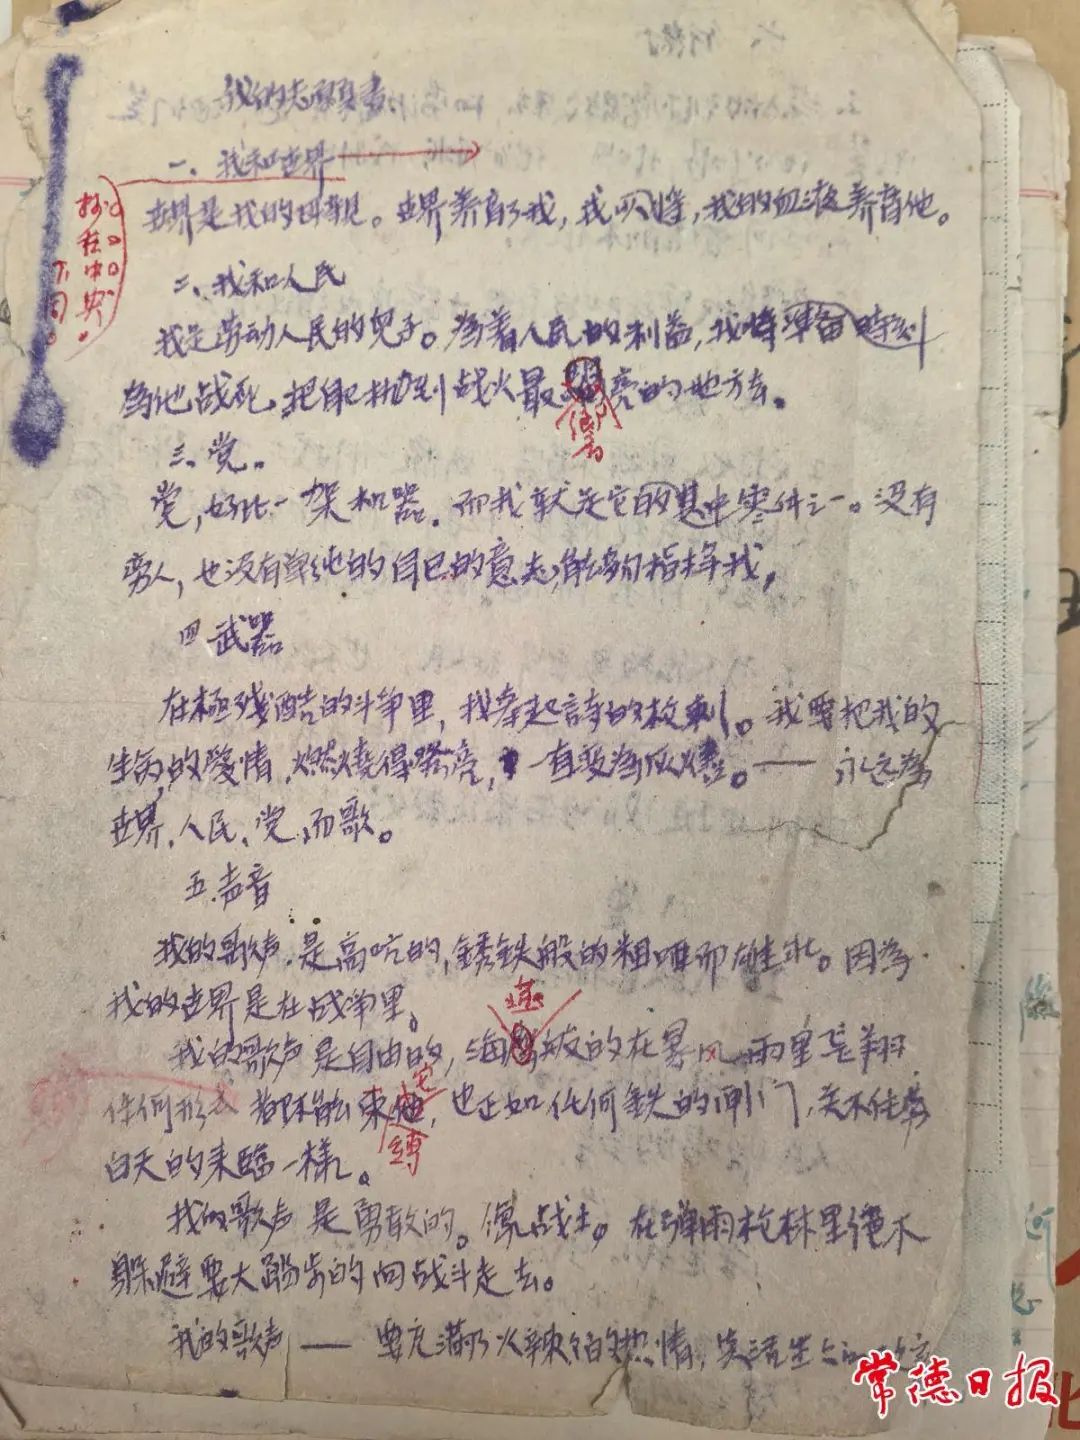 我的志愿书
一、我和世界
抄在中央
下同。
世界是我的母亲。世界养育了我，我，我的血液养育他。
二、我和人民
我是劳动人民的兒子。為着人民的利益，我将準备时刻
為他战死，把自己抛到战火最亮的地方去。
三、党。
党，好比一架机器。而我就是它的其中零件之一。没有
旁人，也没有单纯的自己的意志，能够指挥我，
四 武器
在極残酷的斗争里，我拿起詩的枚刺。我要把我的
生命的爱情，燃烧得嘹亮，一直变為灰燼。—— 永远為
世界、人民、党、而歌。
五.声音
我的歌声，是高吭的，锈铁般的粗嘎而雄壮。因為
我的世界是在战争里。
我的歌声是自由的，海燕般的在暴风雨里飞翔
任何形式都不能束缚它，也正如任何鉄的闸门，关不住
白天的来臨一樣。
我的歌声是勇敢的。像战士。在弹雨枪林里绝不
躲避要大踏步的向战斗走去。
我的歌声——要充满了火辣辣的热情，
常德日报